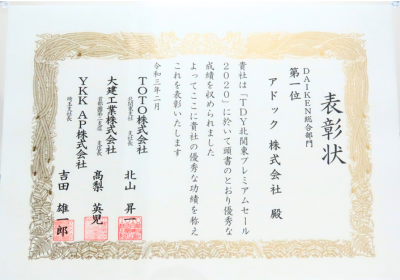 表彰状
DAIKEN総合部門
第一位
アドック 株式会社 殿
貴社は「TDY北関東プレミアムセール
2020」に於いて頭書のとおり優秀な
成績を収められました
よってここに貴社の優秀な功績を称え
これを表彰いたします
令和三年二月
TOTO株式会社
北関東支社 支社長
北山 昇一
大建工業株式会社
髙梨 英児
YKK AP株式会社
埼玉支社長
吉田 雄一郎